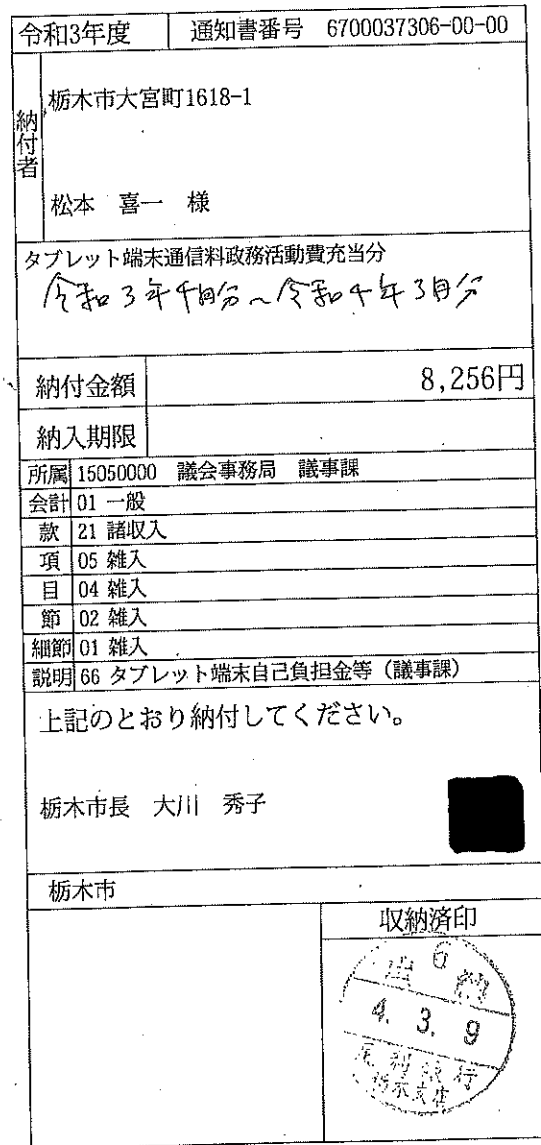 令和3年度 通知書番号 6700037306-00-00
納付者
栃木市大宮町1618-1
松本 喜一 様
タブレット端末通信料政務活動費充当分
令和3年4月分~令和4年3月分
納付金額 8,256円
納入期限
所属 15050000 議会事務局 議事課
会計 01 一般
款 21 諸収入
項 05 雑入
目 04 雑入
節 02 雑入
細節 01 雑入
説明 66 タブレット端末自己負担金等(議事課)
上記のとおり納付してください。
栃木市長 大川 秀子
栃木市
収納済印
6
出納
4. 3. 9
足利銀行
栃木支店